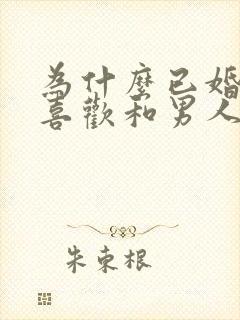 為什麼已婚
喜歡和男人
朱束根